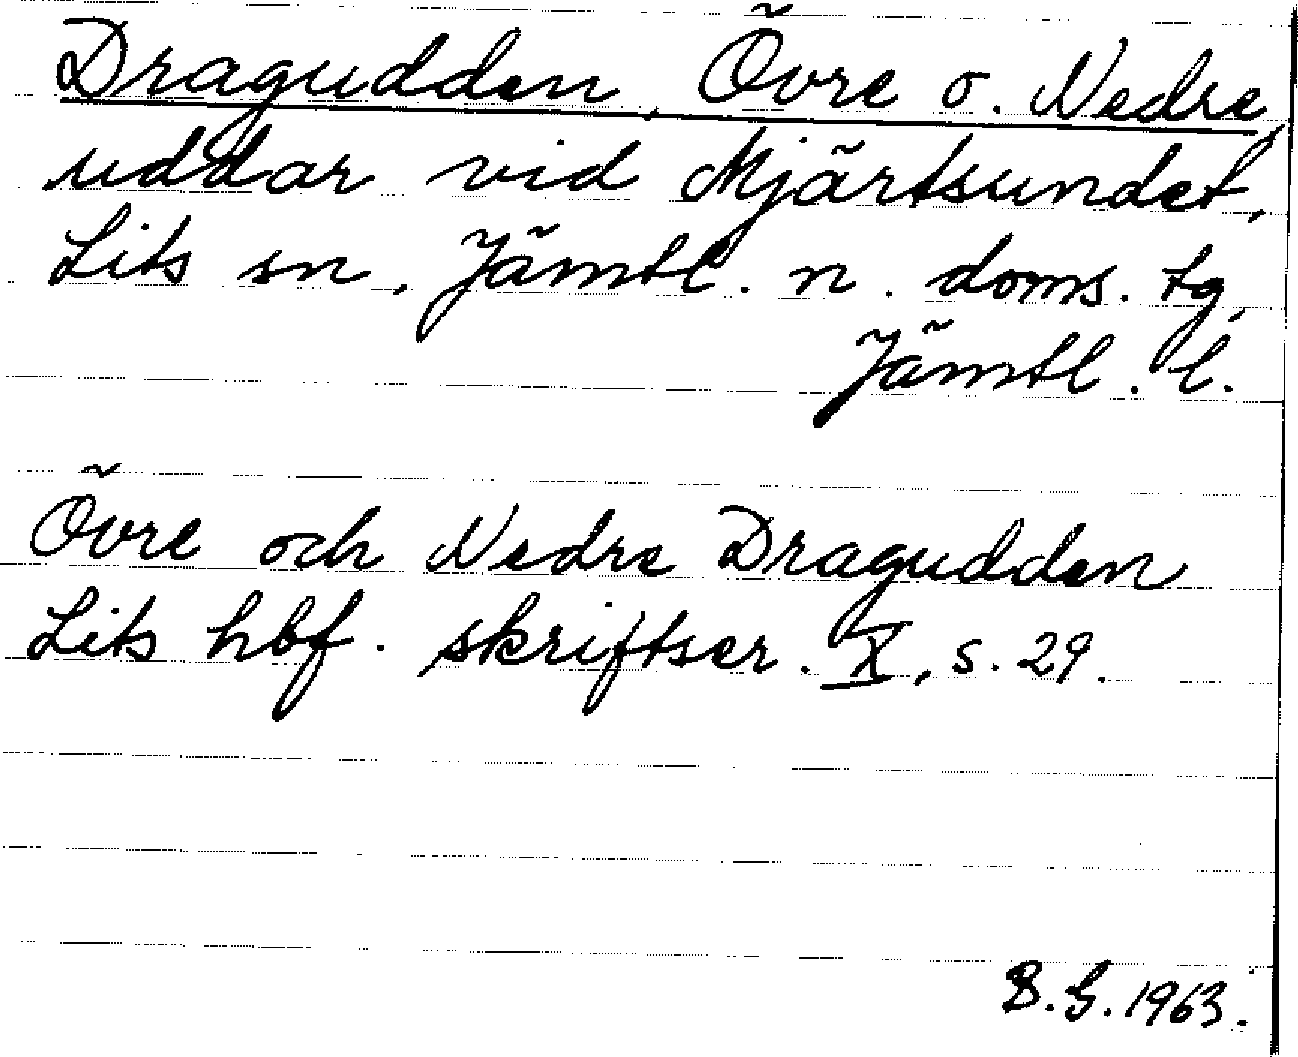 Dragudden, Övre o. Nedre,
uddar vid Mjärtsundet,
Lits sn, Jämtl. n. doms. tg,
Jämtl. l.
Övre och Nedre Dragudden
Lits hbf. skriftser. X, s. 29.
B. G. 1963.